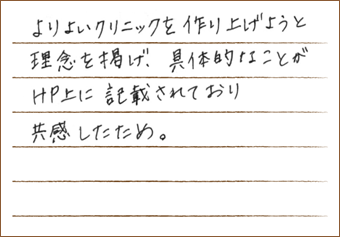 よりよいクリニックを作り上げようと
理念を掲げ、具体的なことが
HP上に記載されており
共感したため。